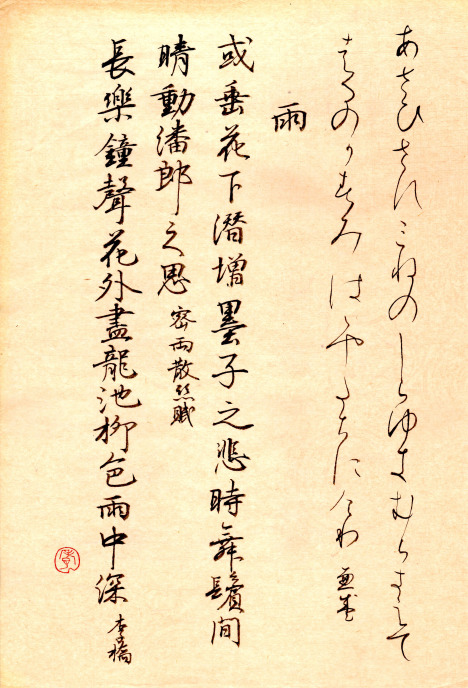 あさひさすみねのしらゆきむらきえて
はるのかすみはやたちにけり 兼盛
雨
或垂花下潛增墨子之悲時舞鬢間
晴動潘郎之思 密雨散絲賦
長樂鐘聲花外盡龍池柳色雨中深 李橋